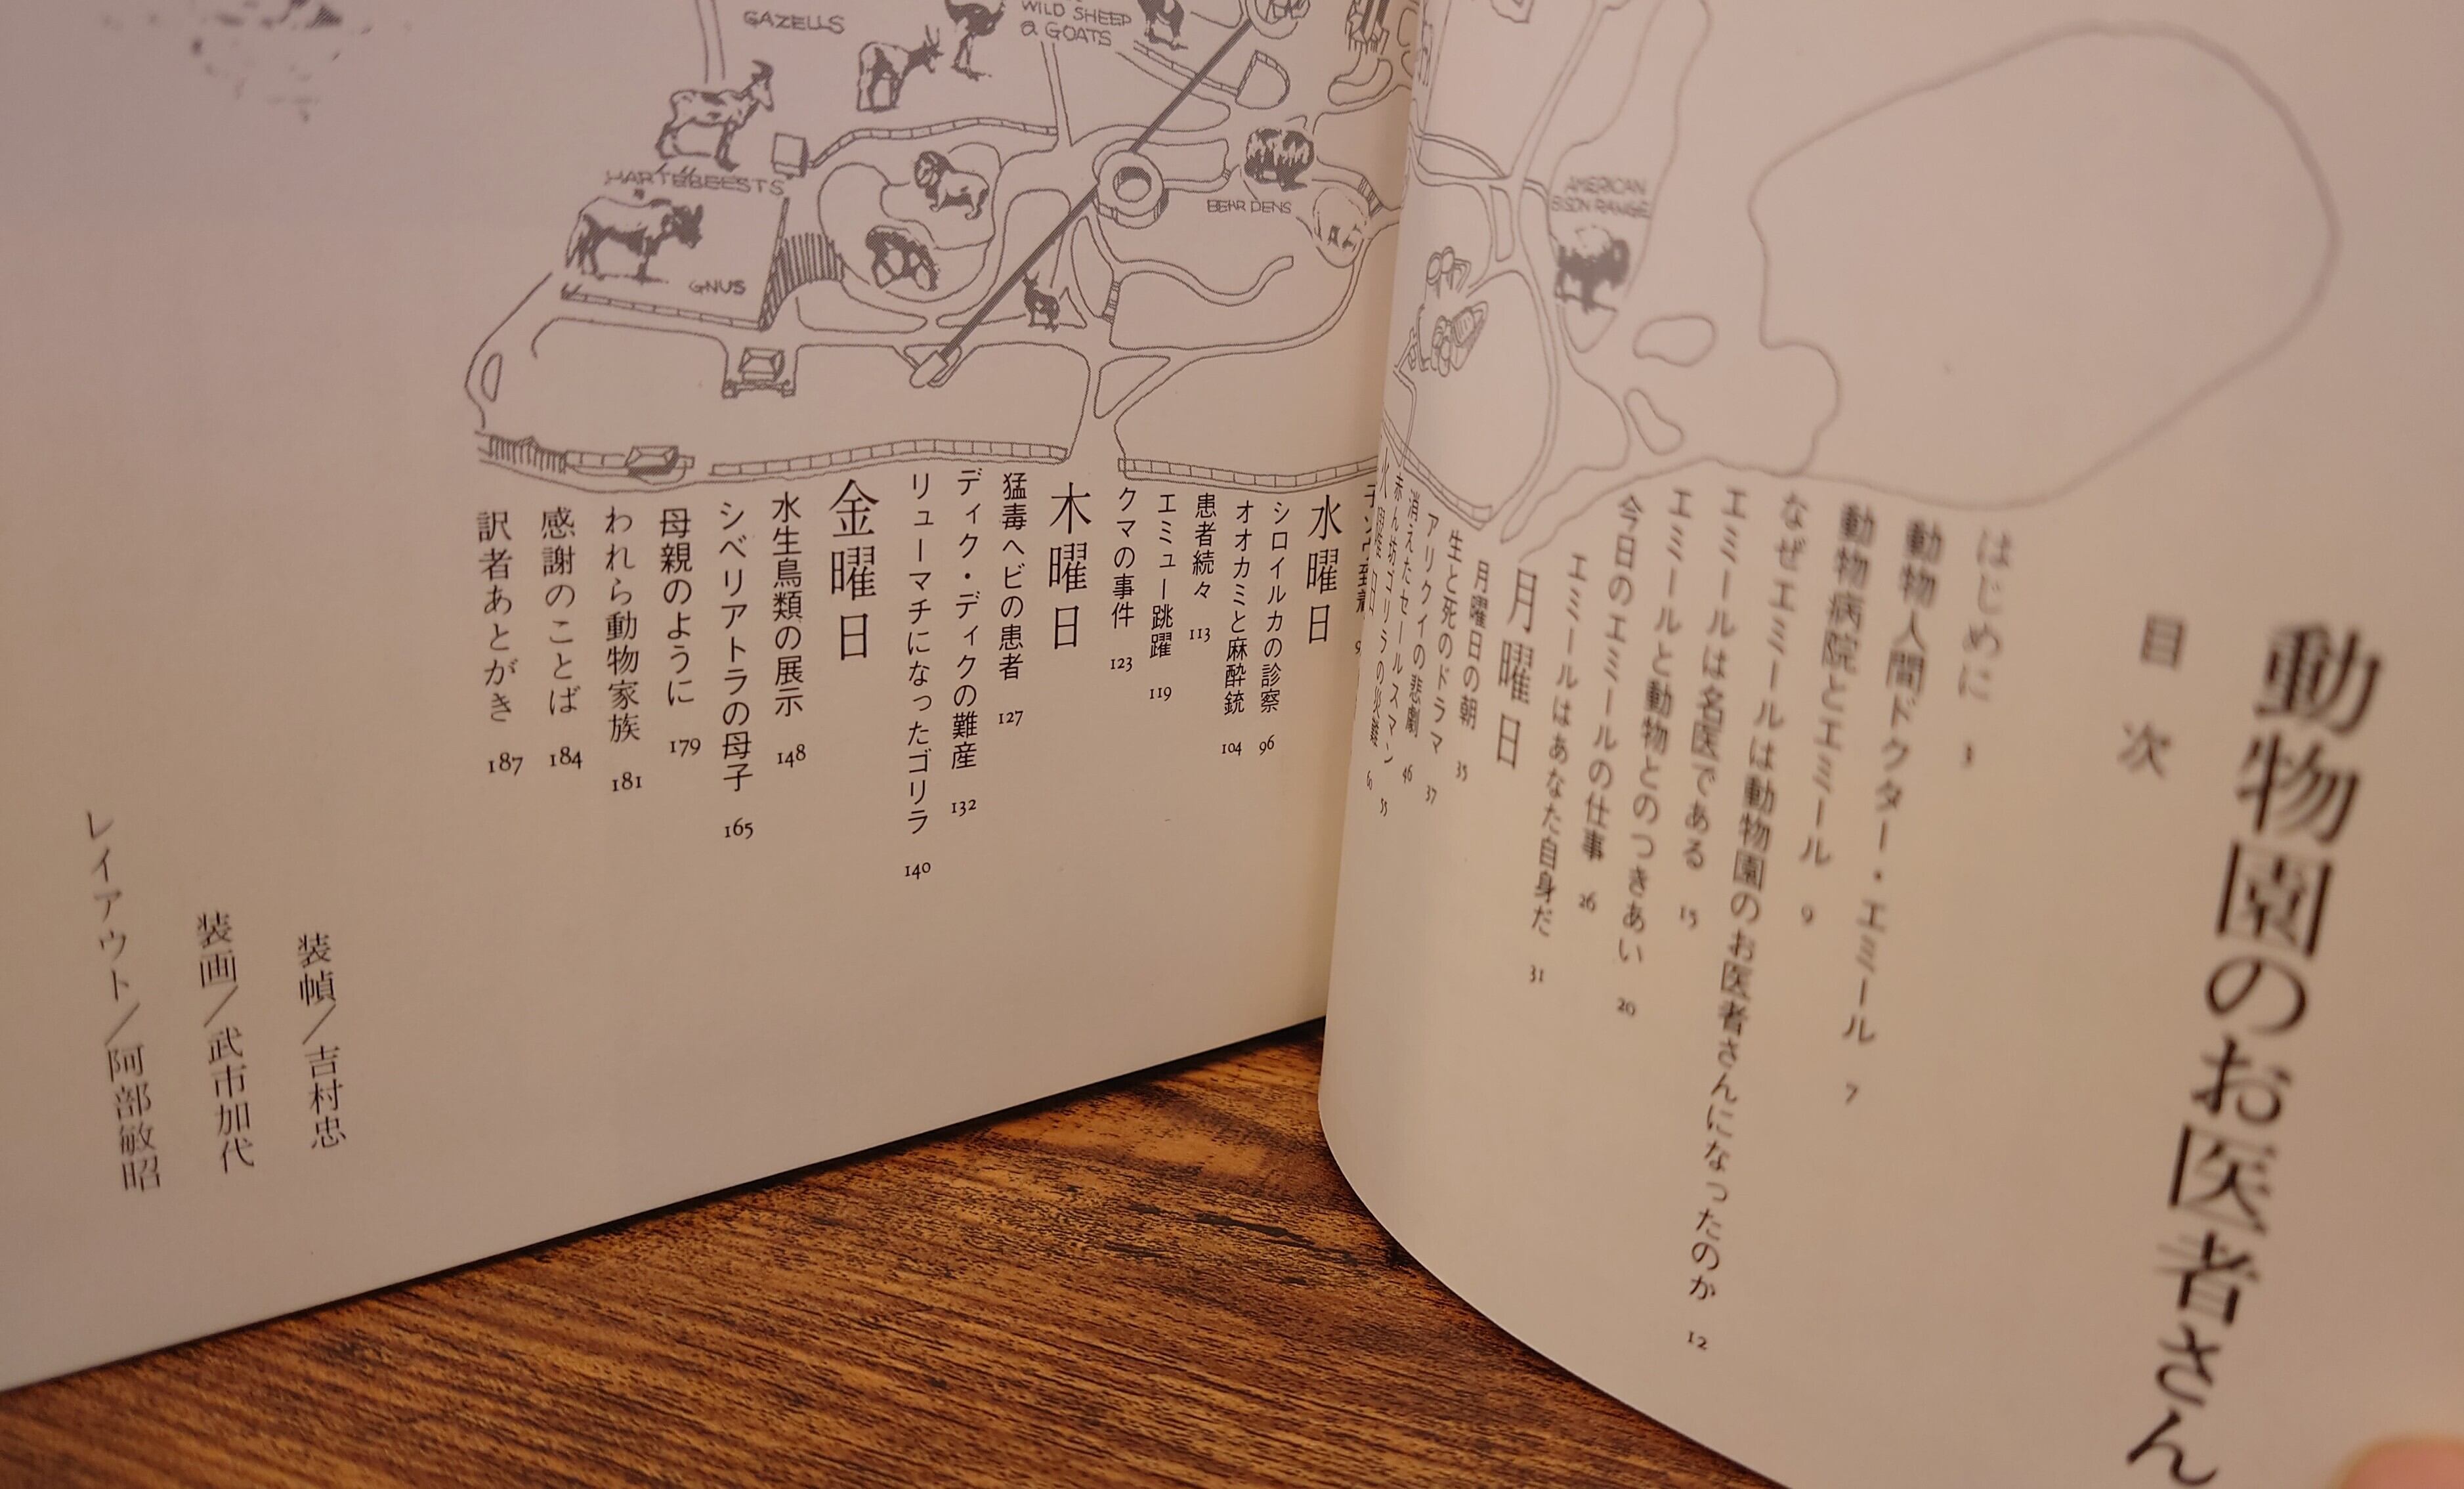 動物園のお医者さん
目次
はじめに 3
動物人間ドクター・エミール 7
動物病院とエミール
なぜエミールは動物園のお医者さんになったのか 12
エミールは名医である 15
エミールと動物とのつきあい 20
今日のエミールの仕事 26
エミールはあなた自身だ 31
月曜日
月曜日の朝 35
生と死のドラマ 37
アリクイの悲劇 46
消えたセールスマン 55
赤ん坊ゴリラの災難
火曜日
水曜日
シロイルカの診察 96
オオカミと麻酔銃 104
患者続々 113
エミュー跳躍 119
クマの事件 123
木曜日
猛毒ヘビの患者 127
ディク・ディクの難産 132
リューマチになったゴリラ 140
金曜日
水生鳥類の展示 148
シベリアトラの母子 165
母親のように 179
われら動物家族 181
感謝のことば 184
訳者あとがき 187
装幀／吉村忠
装画／武市加代
レイアウト／阿部敏昭
GAZELLS
WILD SHEEP
& GOATS
HARTEBEESTS
GNUS
BEAR DENS
AMERICAN
BISON RANGE